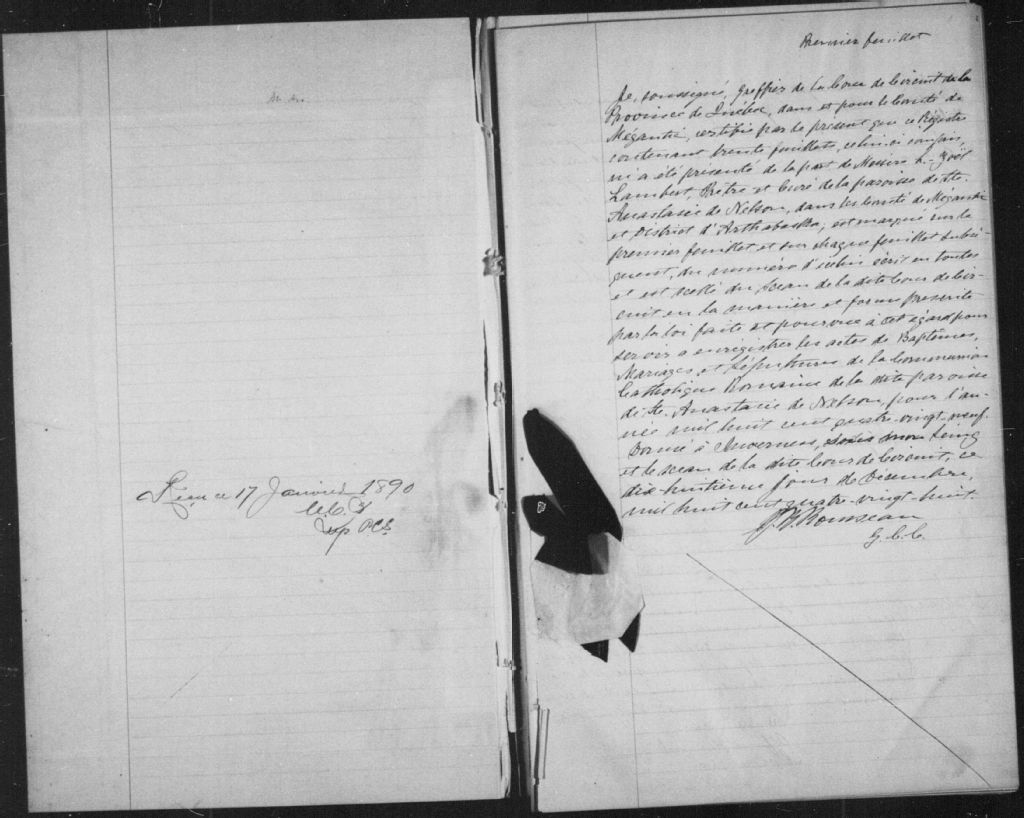 Reçu ce 17 Janvier 1890
Premier feuillet
Je, soussigné, Greffier de la Cour de Circuit de la
Province de Québec, dans et pour le Comté de
Mégantic, certifie par le présent que ce Régistre
contenant trente feuillets, celui-ci compris,
m'a été présenté de la part de Messire L. Zoël
Lambert, Prêtre et Curé de la paroisse de Ste.
Anastasie de Nelson, dans les Comté de Mégantic
et District d'Arthabaska; est marqué sur le
premier feuillet et sur chaque feuillet subsé-
quent, du numéro d'icelui écrit en toutes
et est scellé du sceau de la dite Cour de Cir-
cuit en la manière et forme prescrite
par la loi faite et pourvue à cet égard pour
servir à enregistrer les actes de Baptêmes,
Mariages et Sépultures de la Communion
Catholique Romaine de la dite paroisse
de Ste. Anastasie de Nelson, pour l'an-
née mil huit cent quatre-vingt neuf.
Donné à Inverness, sous mon seing
et le sceau de la dite Cour de Circuit, ce
dix-huitième jour de Décembre,
mil huit cent quatre-vingt-huit.
Rousseau
G. C. C.